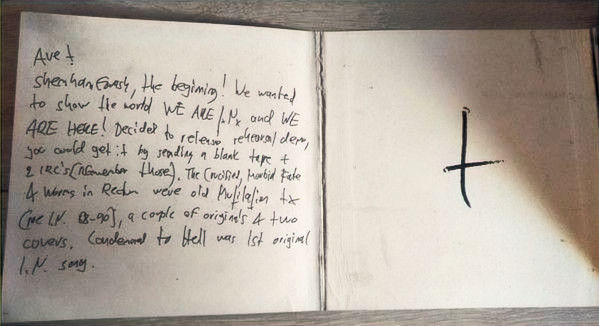 Ave †
the begining! We wanted
to show the world WE ARE I.N. and WE
ARE HERE! Decided to release rehearsal demo,
you could get it by sending a blank tape +
2 IRC's (remember those). The Crucified, Morbid Fate
& Worms in Rectum were old tx
(pre I.N. 88-90), a couple of originals & two
covers. Condemned to Hell was 1st original
I.N. song.